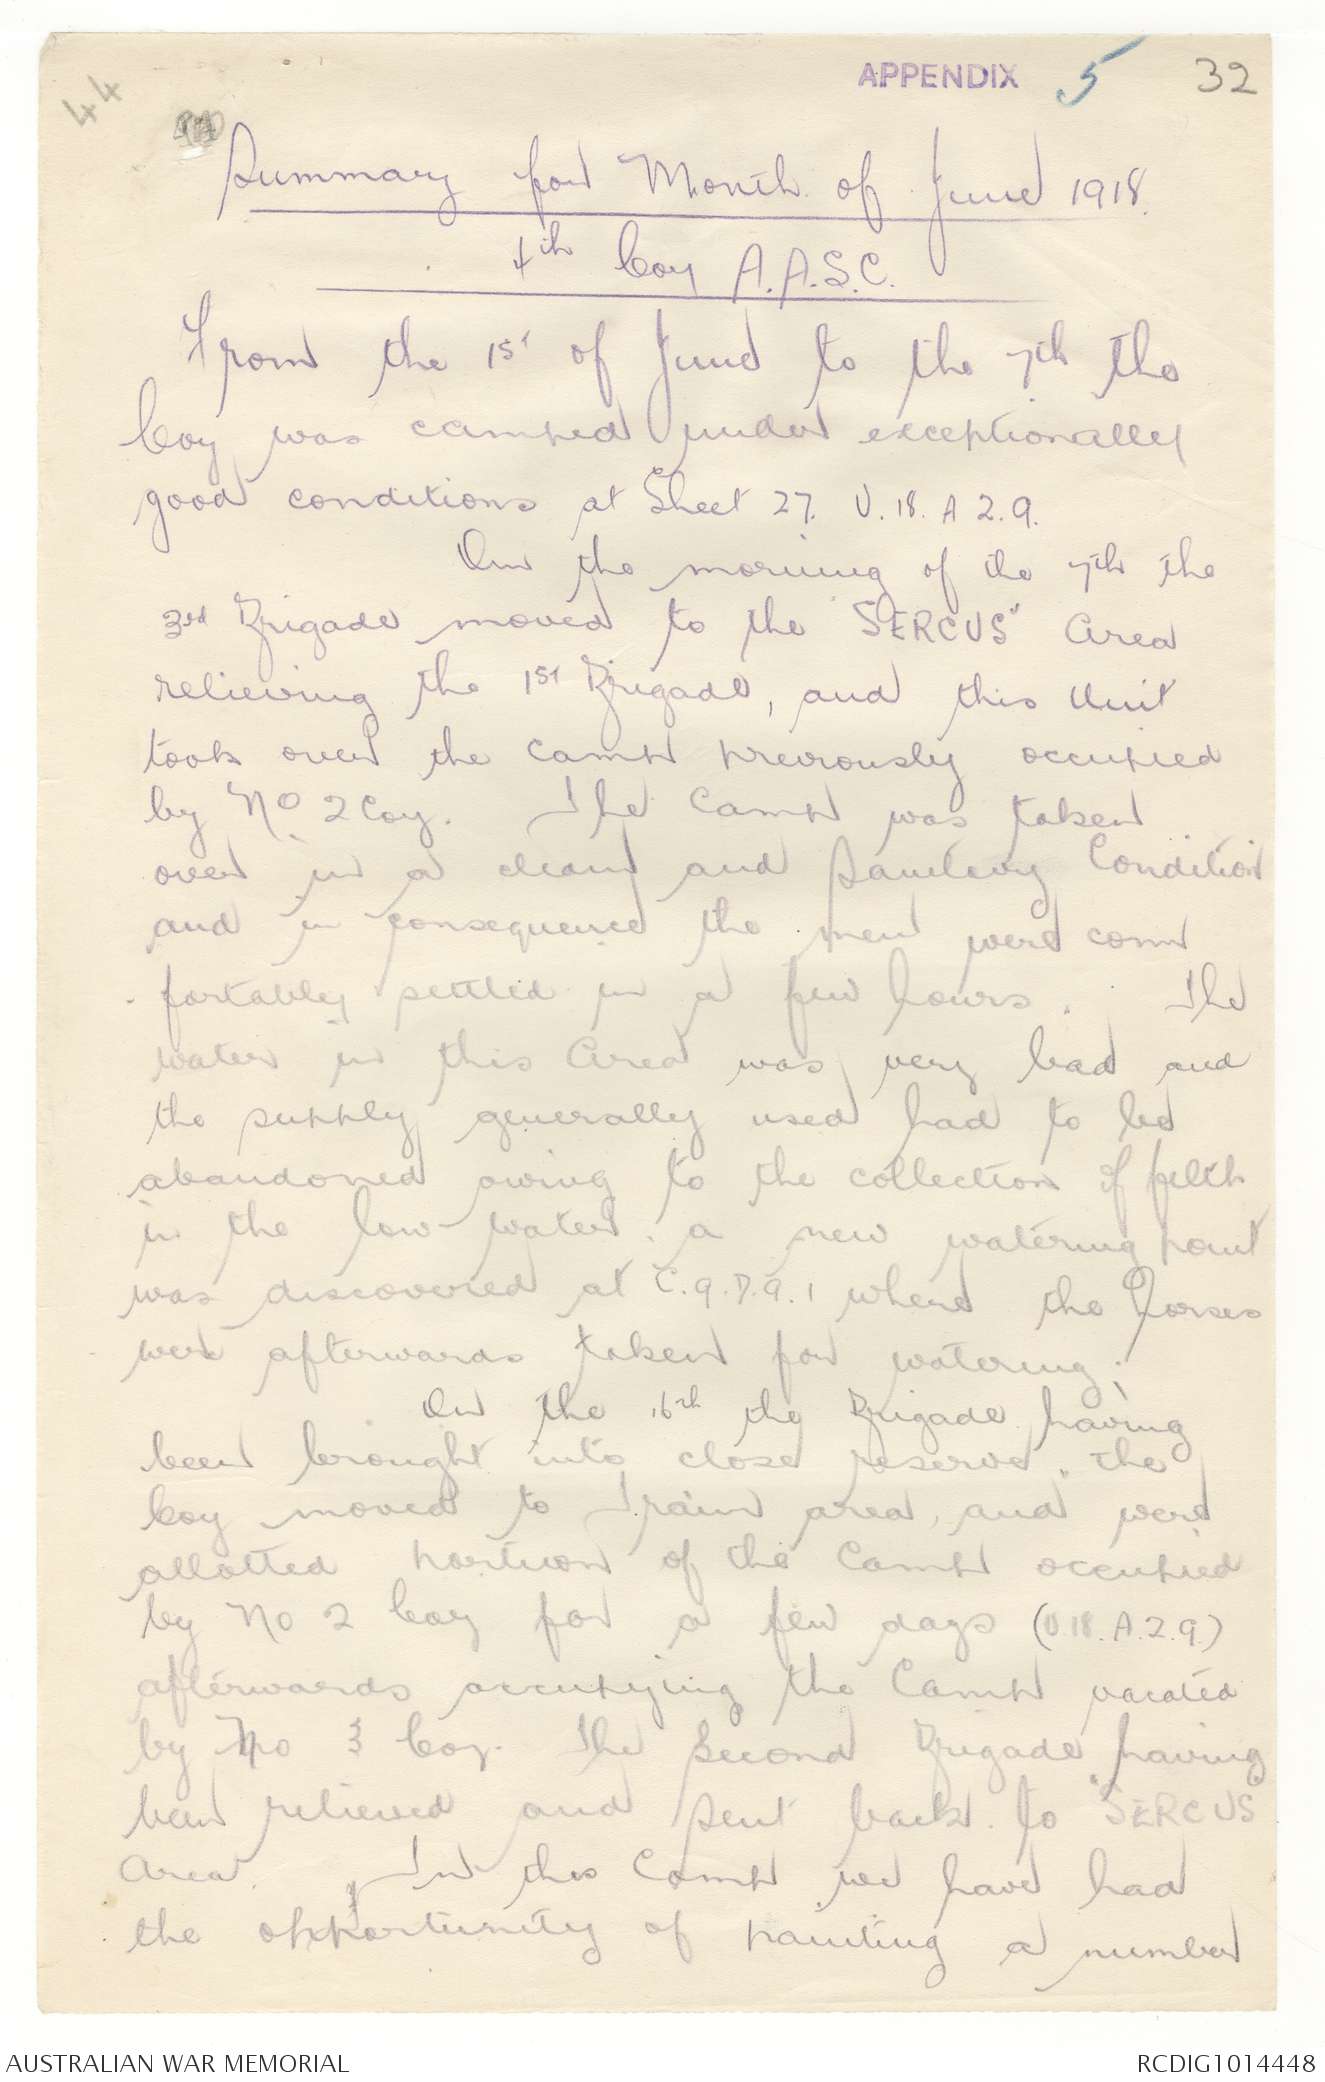 44
APPENDIX 5 32
Summary for Month of June 1918.
4th Coy A.A.S.C.
From the 1st of June to the 7th the
Coy was camped under exceptionally
good conditions at Sheet 27. U.18. A 2.9.
On the morning of the 7th the
3rd Brigade moved to the "SERCUS" Area
relieving the 1st Brigade, and this Unit
took over the camp previously occupied
by No 2 Coy. The Camp was taken
over in a clean and Sanitary Condition
and in consequence the men were com
fortably settled in a few hours. The
water in this Area was very bad and
the supply generally used had to be
abandoned owing to the collection of filth
in the low water. a new watering point
was discovered at C.9.D.9.1 where the Horses
were afterwards taken for watering.
On the 16th the Brigade having
been brought into close reserve, the
Coy moved to Train area, and were
allotted portion of the Camp occupied
by No 2 Coy for a few days (U.18.A.2.9.)
afterwards occupying the Camp vacated
by No 3 Coy. The Second Brigade having
been relieved and sent back to "SERCUS"
Area. In this Camp we have had
the opportunity of painting a number
AUSTRALIAN WAR MEMORIAL RCDIG1014448